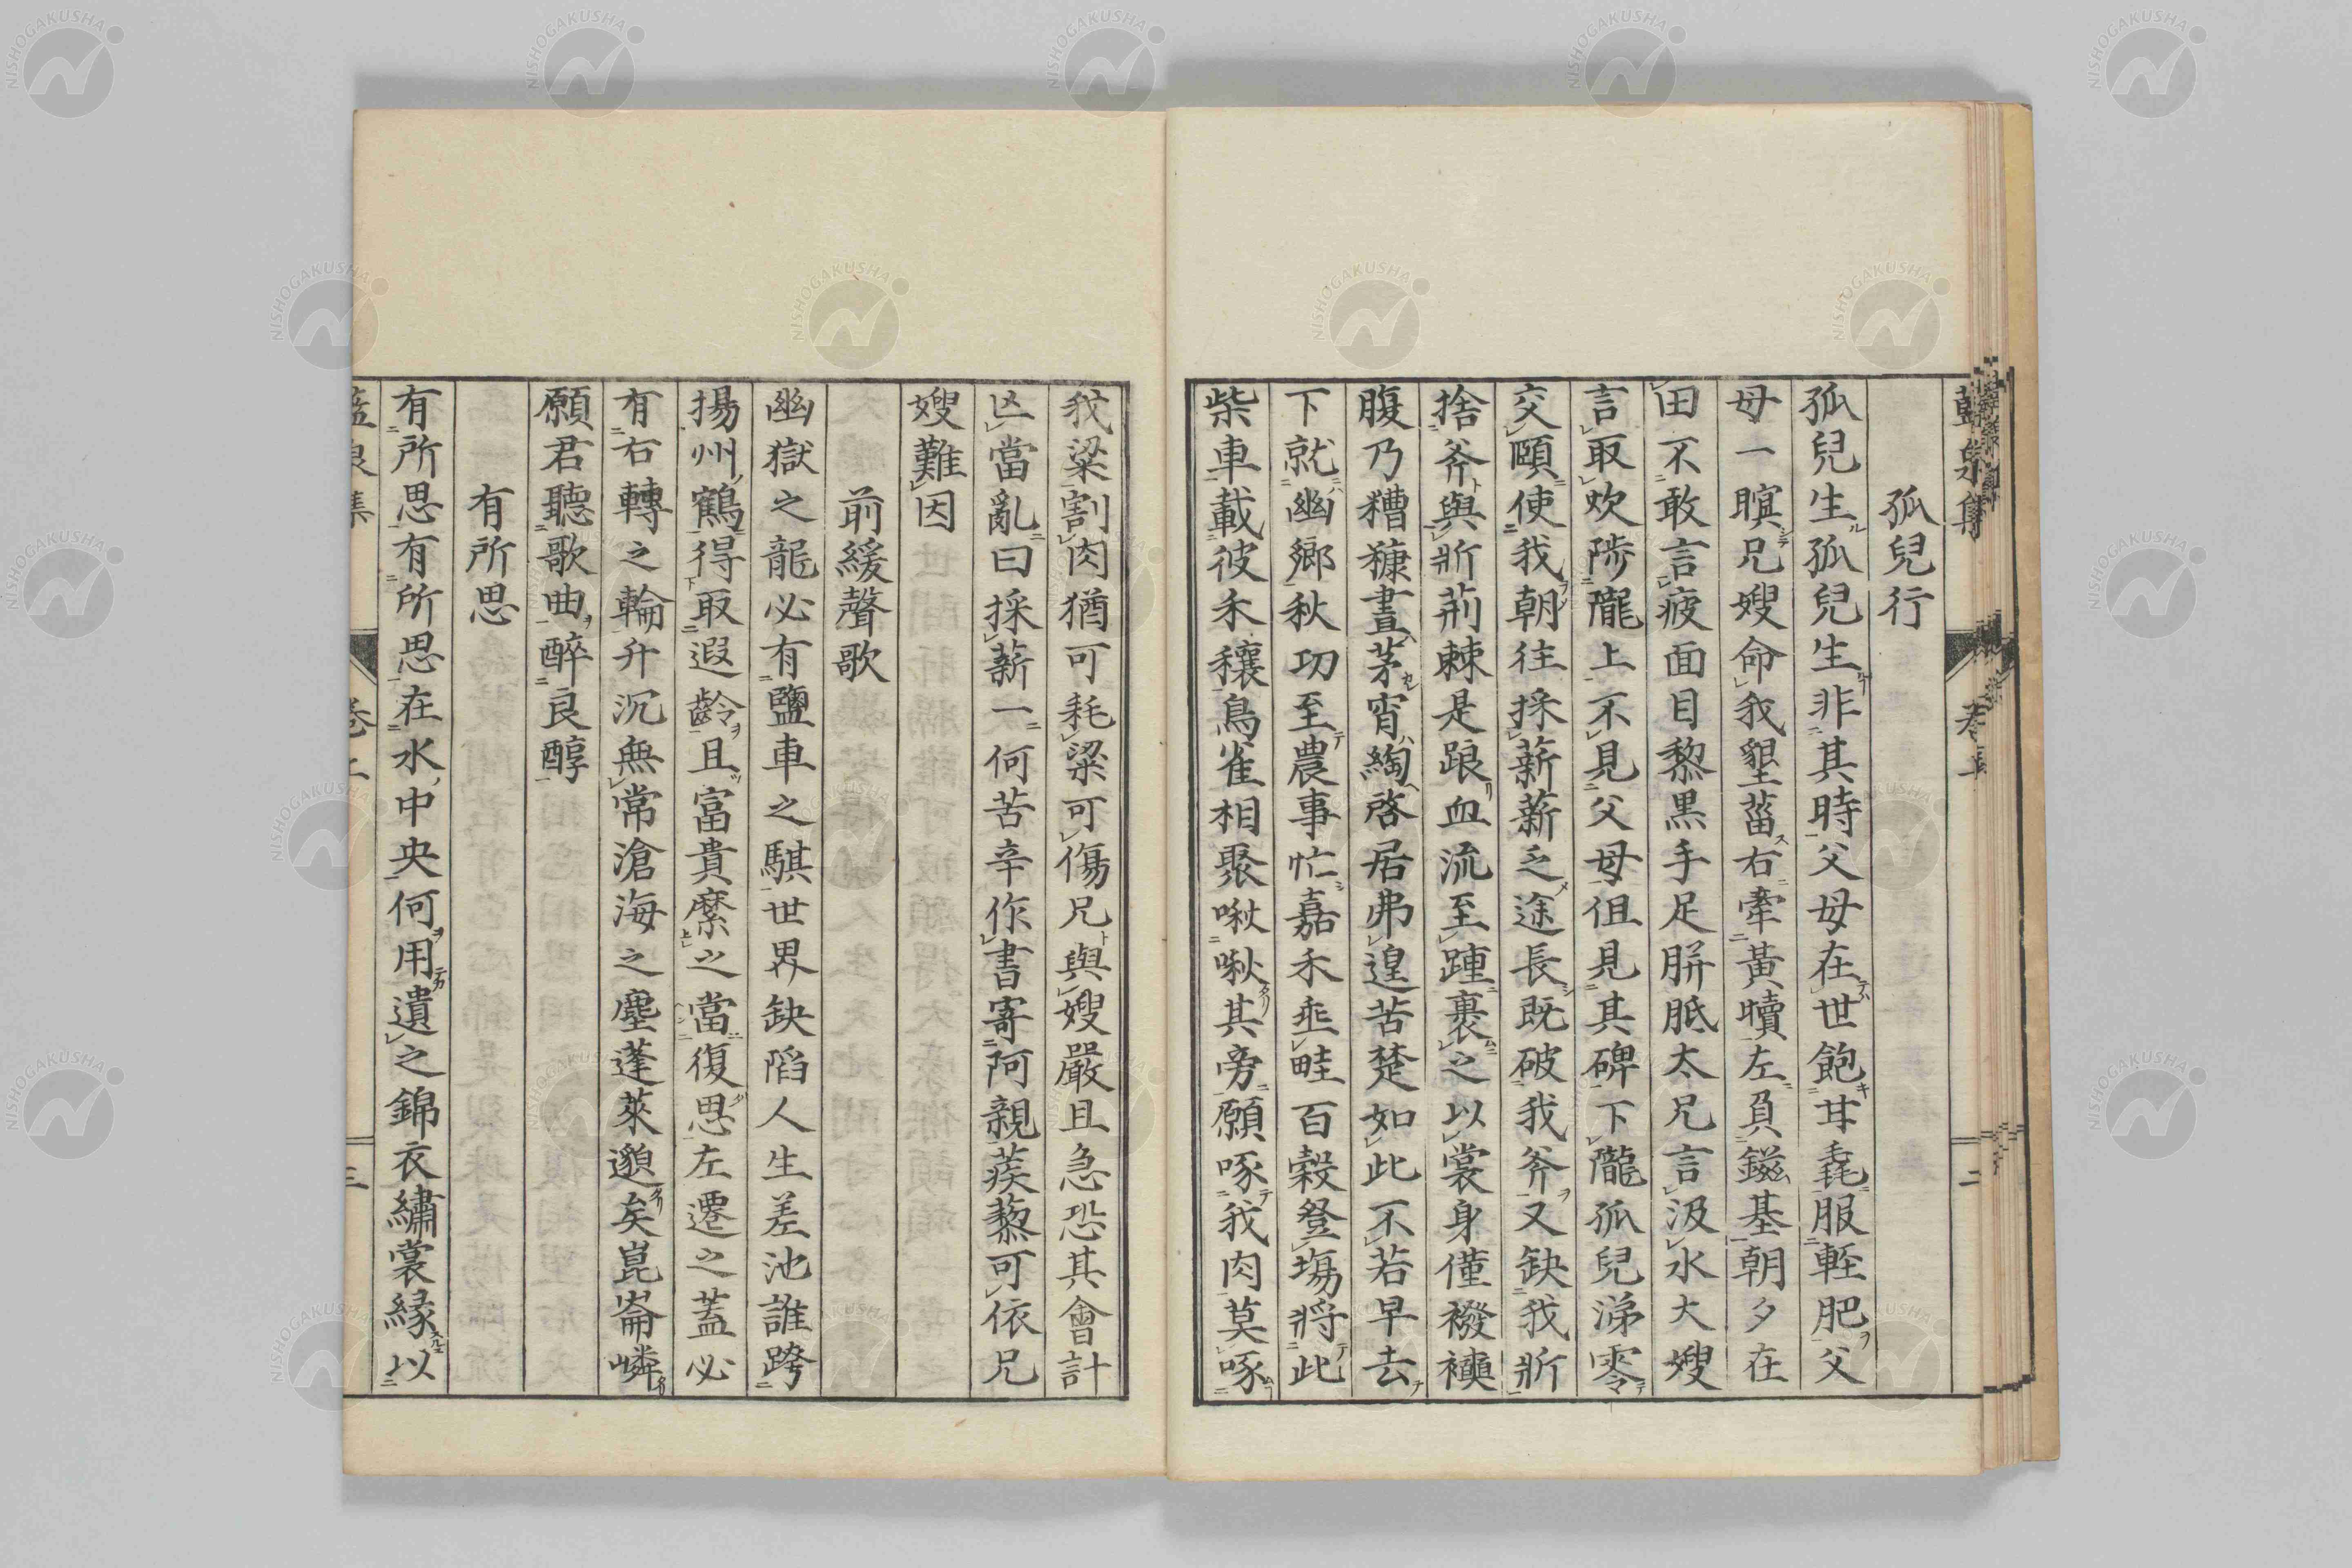 孤兒行
孤兒生孤兒生非其時父母在世飽甘毳服輕肥父
母一瞑兄嫂命我墾菑右牽黃犢左負鎡基朝夕在
田不敢言疲面目黎黑手足胼胝太兄言汲水大嫂
言取炊陟隴上不見父母但見其碑下隴孤兒涕零
交頤使我朝往採薪薪乏途長既破我斧又缺我斨
捨斧與斨荊棘是踉血流至踵裹之以裳身僅襏襫
腹乃糟糠晝茅宵綯啓居弗遑苦楚如此不若早去
下就幽鄉秋功至農事忙嘉禾垂畦百穀登塲將此
柴車載彼禾穰鳥雀相聚啾啾其旁願啄我肉莫啄
我粱割肉猶可耗粱可傷兄與嫂嚴且急恐其會計
亾當亂曰採薪一何苦辛作書寄阿親蒺藜可依兄
嫂難因
前緩聲歌
幽獄之龍必有鹽車之騏世界缺陷人生差池誰跨
揚州鶴得取遐齡且富貴縻之當復思左遷之蓋必
有右轉之輪升沉無常滄海之塵蓬萊邈矣崑崙嶙
願君聽歌曲醉良醇
有所思
有所思有所思在水中央何用遺之錦衣繡裳緣以